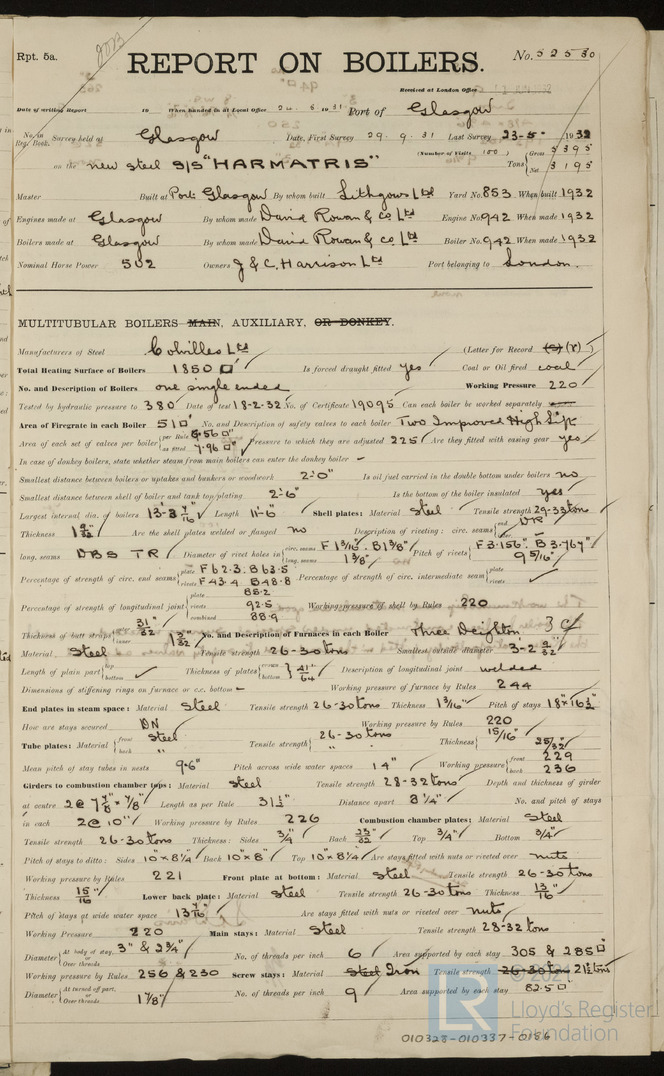 Rpt. 5a.
REPORT ON BOILERS.
No. 52530
Received at London Office
Date of writing Report 19 When handed in at Local Office 24. 8. 1931 Port of Glasgow
No. in Reg. Book. Survey held at Glasgow Date, First Survey 29. 9. 31 Last Survey 23-5- 1932
(Number of Visits 100) Gross 5395
on the new steel S/S "HARMATRIS" Tons Net 3195
Master Built at Port Glasgow By whom built Lithgows Ltd Yard No. 853 When built 1932
Engines made at Glasgow By whom made David Rowan & Co Ltd Engine No. 942 When made 1932
Boilers made at Glasgow By whom made David Rowan & Co Ltd Boiler No. 942 When made 1932
Nominal Horse Power 502 Owners J & C. Harrison Ltd Port belonging to London.
MULTITUBULAR BOILERS MAIN, AUXILIARY, OR DONKEY.
Manufacturers of Steel Colvilles Ltd (Letter for Record (S) (r) )
Total Heating Surface of Boilers 1850 □' Is forced draught fitted yes Coal or Oil fired coal
No. and Description of Boilers one single ended Working Pressure 220
Tested by hydraulic pressure to 380 Date of test 18-2-32 No. of Certificate 19095 Can each boiler be worked separately
Area of Firegrate in each Boiler 51 □' No. and Description of safety valves to each boiler Two Improved High Lift
Area of each set of valves per boiler per Rule 6.56 □" as fitted 7.96 □" Pressure to which they are adjusted 225 Are they fitted with easing gear yes
In case of donkey boilers, state whether steam from main boilers can enter the donkey boiler -
Smallest distance between boilers or uptakes and bunkers or woodwork 2'-0" Is oil fuel carried in the double bottom under boilers no
Smallest distance between shell of boiler and tank top plating 2'-6" Is the bottom of the boiler insulated yes
Largest internal dia. of boilers 13'-8 7/16" Length 11'-6" Shell plates: Material Steel Tensile strength 29-33 tons
Thickness Are the shell plates welded or flanged no Description of riveting: circ. seams end DR
long. seams DBS TR Diameter of rivet holes in circ. seams F 1 3/16" B 1 3/8" long. seams 1 3/8" Pitch of rivets F 3.156" B 3.767" 9 5/16"
Percentage of strength of circ. end seams plate F 62.3. B 63.5 rivets F 43.4 B 48.8 Percentage of strength of circ. intermediate seam plate rivets
Percentage of strength of longitudinal joint plate 85.2 rivets 92.5 combined 88.9 Working pressure of shell by Rules 220
Thickness of butt straps outer 31/32 inner 1 3/32 No. and Description of Furnaces in each Boiler Three Deighton
Material Steel Tensile strength 26-30 tons Smallest outside diameter 3'-2 9/32"
Length of plain part top bottom Thickness of plates crown bottom 41/64 Description of longitudinal joint welded
Dimensions of stiffening rings on furnace or c.c. bottom - Working pressure of furnace by Rules 244
End plates in steam space: Material Steel Tensile strength 26-30 tons Thickness 1 3/16" Pitch of stays 18" x 16 1/2"
How are stays secured DN Working pressure by Rules 220
Tube plates: Material front Steel back " Tensile strength 26-30 tons " Thickness 15/16" 25/32"
Mean pitch of stay tubes in nests 9.6" Pitch across wide water spaces 14" Working pressure front 229 back 236
Girders to combustion chamber tops: Material Steel Tensile strength 28-32 tons Depth and thickness of girder
at centre 2 @ 7 7/8" x 7/8" Length as per Rule 31 1/2" Distance apart 8 1/4" No. and pitch of stays
in each 2 @ 10" Working pressure by Rules 226 Combustion chamber plates: Material Steel
Tensile strength 26-30 tons Thickness: Sides 3/4" Back 23/32 Top 3/4" Bottom 3/4"
Pitch of stays to ditto: Sides 10" x 8 1/4" Back 10" x 8" Top 10" x 8 1/4 Are stays fitted with nuts or riveted over nuts
Working pressure by Rules 221 Front plate at bottom: Material Steel Tensile strength 26-30 tons
Thickness 15/16" Lower back plate: Material Steel Tensile strength 26-30 tons Thickness 13/16"
Pitch of stays at wide water space 13 7/16" Are stays fitted with nuts or riveted over nuts
Working Pressure 220 Main stays: Material Steel Tensile strength 28-32 tons
Diameter At body of stay, or Over threads 3" & 2 3/4" No. of threads per inch 6 Area supported by each stay 305 & 285 □"
Working pressure by Rules 256 & 230 Screw stays: Material Steel Iron Tensile strength 26-30 ton 21 1/2 tons
Diameter At turned off part, or Over threads 1 7/8" No. of threads per inch 9 Area supported by each stay 82.50 □"
© 2021
LR
Lloyd's Register
Foundation
010328-010337-0186